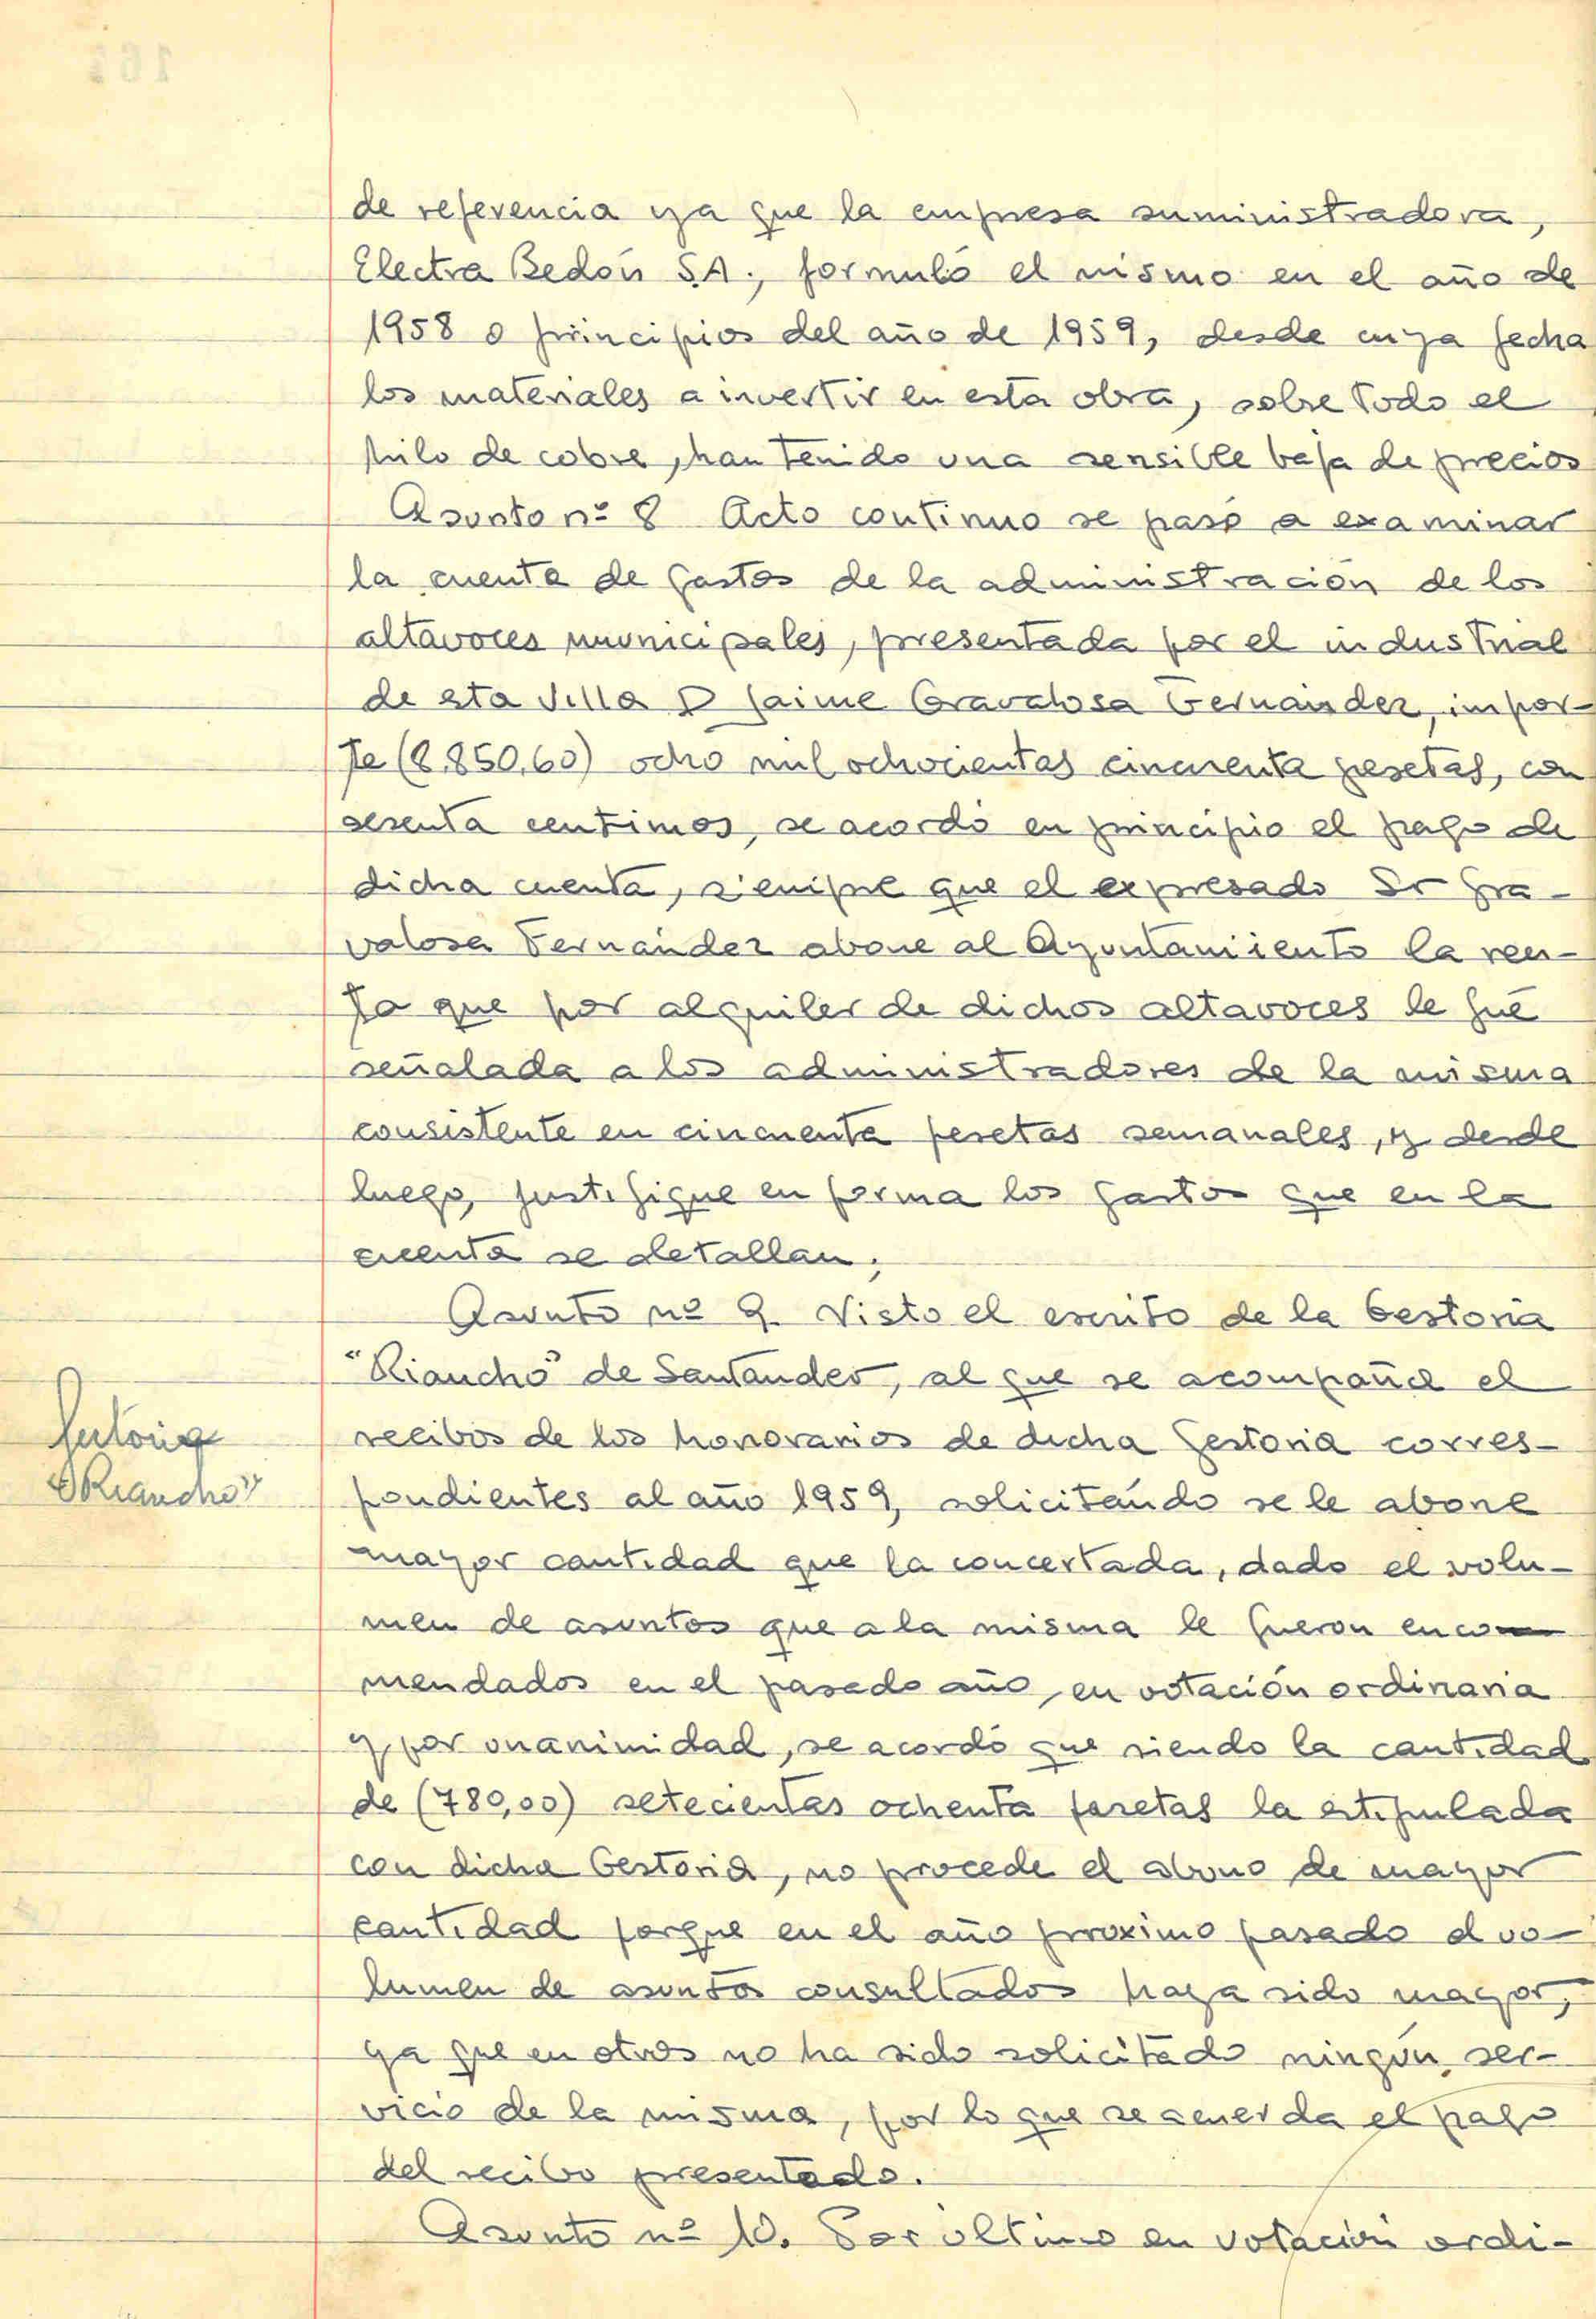 de referencia ya que la empresa suministradora,
Electra Bedón S.A., formuló el mismo en el año de
1958 o principios del año de 1959, desde cuya fecha
los materiales a invertir en esta obra, sobre todo el
hilo de cobre, han tenido una sensible baja de precios
Asunto nº 8 Acto continuo se pasó a examinar
la cuenta de gastos de la administración de los
altavoces municipales, presentada por el industrial
de esta Villa D Jaime Gravalosa Fernández, impor-
te (8.850,60) ocho mil ochocientas cincuenta pesetas, con
sesenta centimos, se acordó en principio el pago de
dicha cuenta, siempre que el expresado Sr Gra-
valosa Fernández abone al Ayuntamiento la ren-
ta que por alquiler de dichos altavoces le fué
señalada a los administradores de la misma
consistente en cincuenta pesetas semanales, y desde
luego, justifique en forma los gastos que en la
cuenta se detallan.
Asunto nº 9. Visto el escrito de la Gestoria
"Riancho" de Santander, al que se acompaña el
recibos de los honorarios de dicha Gestoria corres-
pondientes al año 1959, solicitando se le abone
mayor cantidad que la concertada, dado el volu-
men de asuntos que a la misma le fueron enco
mendados en el pasado año, en votación ordinaria
y por unanimidad, se acordó que siendo la cantidad
de (780,00) setecientas ochenta pesetas la estipulada
con dicha Gestoria, no procede el abono de mayor
cantidad porque en el año proximo pasado el vo-
lumen de asuntos consultados haya sido mayor,
ya que en otros no ha sido solicitado ningún ser-
vicio de la misma, por lo que se acuerda el pago
del recibo presentado.
Asunto nº 10. Por último en votación ordi-
Gestoria
"Riancho"